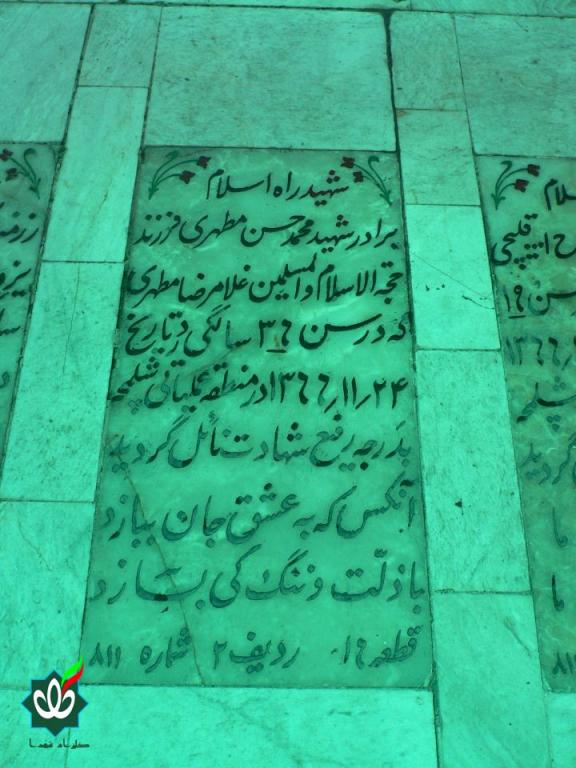 شهید راه اسلام
برادر شهید محمد حسن مطهری فرزند
حجه الاسلام والمسلمین غلامرضا مطهری
که در سن ۳۶ سالگی در تاریخ
۱۳۶۶/۱۱/۲۴ در منطقه عملیاتی شلمچه
بدرجه رفیع شهادت نائل گردید
آنکس که به عشق جان ببازد
با ذلّت و ننگ کی بسازد
قطعه ۱۶ ردیف ۲ شماره ۸۱۱